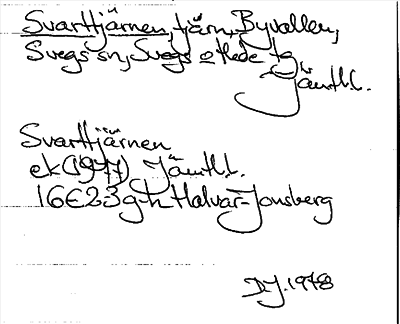 Svarttjärnen, tjärn, Byvallen,
Svegs sn, Svegs o Hede tg
Jämtl.l.
Svarttjärnen
ek(1977) Jämtl.l.
16E23gh Halvar-Jonsberg
DJ.1978